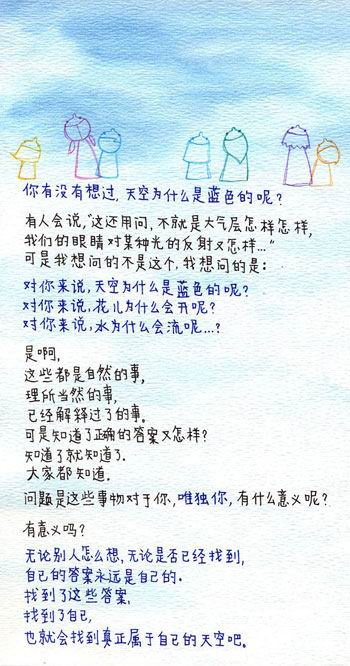 你有没有想过，天空为什么是蓝色的呢？
有人会说，“这还用问，不就是大气层怎样怎样，
我们的眼睛对某种光的反射又怎样…”
可是我想问的不是这个，我想问的是：
对你来说，天空为什么是蓝色的呢？
对你来说，花儿为什么会开呢？
对你来说，水为什么会流呢…？
是啊，
这些都是自然的事，
理所当然的事，
已经解释过了的事。
可是知道了正确的答案又怎样？
知道了就知道了．
大家都知道．
问题是这些事物对于你，唯独你，有什么意义呢？
有意义吗？
无论别人怎么想，无论是否已经找到，
自己的答案永远是自己的．
找到了这些答案，
找到了自己，
也就会找到真正属于自己的天空吧。